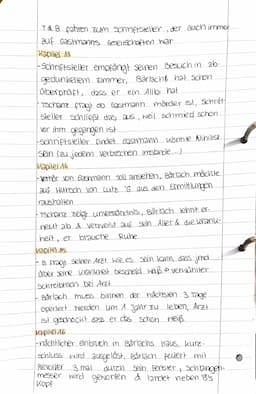 T & B fahren zum Schriftsteller, der auch immer
auf Gastmanns Gesellschaften war
Kapitel 13
- Schriftsteller empfängt seinen Besuch in ab-
gedunkeltem Zimmer, Bärlach hat schon
überprüft, dass er ein Alibi hat
- Tschanz fragt ob Gastmann Mörder ist, Schrift-
steller schließt dies aus, weil Schmied schon
vor ihm gegangen ist
- Schriftsteller findet Gastmann wäre Nihilist
sein (zu jedem Verbrechen imstande...)
Kapitel 14
von Gastmann soll ansehen, Bärlach möchte
auf Wunsch von Lutz G. aus den Ermittlungen
raushalten
- Tschanz zeigt Unverständnis, Bärlach lehnt er-
neut ab & verweist auf sein Alter & die Krank-
heit, er brauche Ruhe
Kapitel 15
- B. fragt seinen Arzt wie es sein kann, dass jmd
über seine Krankheit bescheid weiß → verwühlter
Schreibtisch bei Arzt
- Bärlach muss binnen der nächsten 3 Tage
operiert werden um 1 Jahr zu leben, Arzt
ist geschockt dass er das schon weiß
Kapitel 16
- nächtlicher Einbruch in Bärlachs Haus, Kurz-
schluss wird ausgelöst, Bärlach feuert mit
Revolver 3 mal durch sein Fenster, Schlangen-
messer wird geworfen & landet neben B's
Kopf